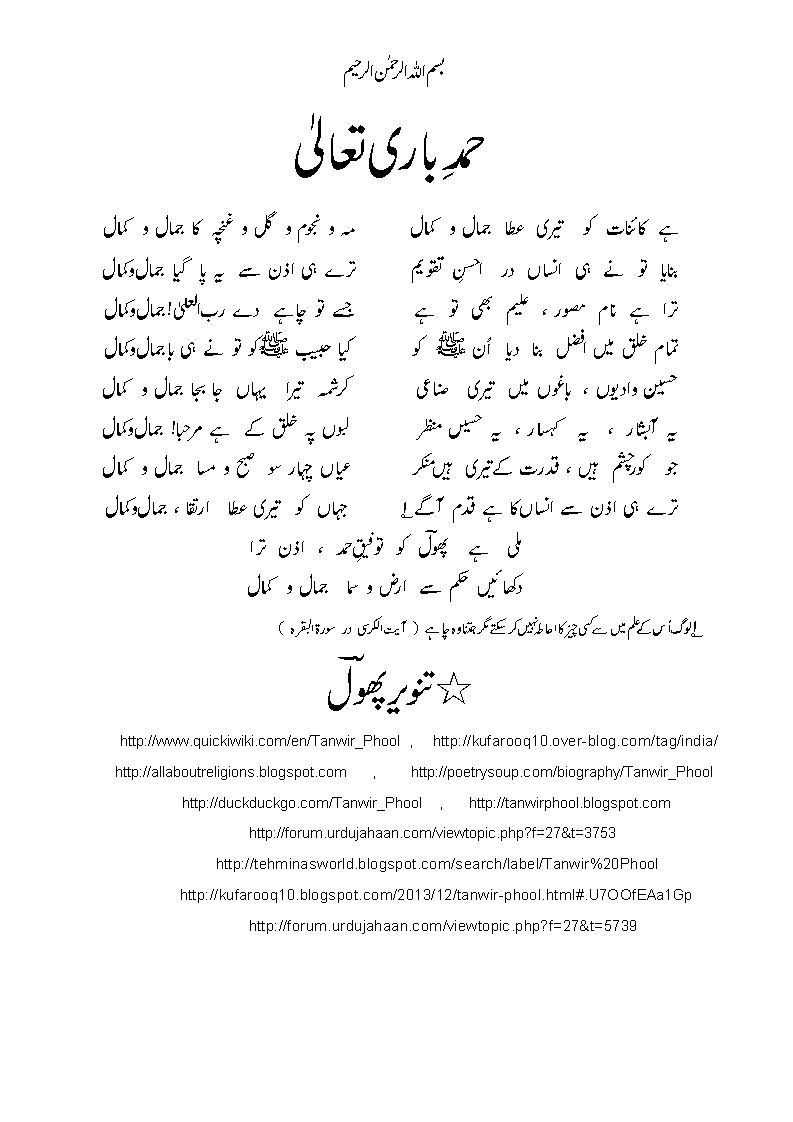 بسم اللہ الرحمٰن الرحیم
حمدِ باری تعالیٰ
ہے کائنات کو تیری عطا جمال و کمال مہ و نجوم و گل و غنچہ کا جمال و کمال
بنایا تو نے ہی انساں در احسنِ تقویم ترے ہی اذن سے یہ پا گیا جمال و کمال
ترا ہے نام مصور ، علیم بھی تو ہے جسے تو چاہے دے رب العلیٰ! جمال و کمال
تمام خلق میں افضل بنا دیا اُن ﷺ کو کیا حبیب ﷺ کو تو نے ہی با جمال و کمال
حسین وادیوں ، باغوں میں تیری صناعی کرشمہ تیرا یہاں جا بجا جمال و کمال
یہ آبشار ، یہ کہسار ، یہ حسیں منظر لبوں پہ خلق کے ہے مرحبا! جمال و کمال
جو کور چشم ہیں ، قدرت کے تیری ہیں منکر عیاں چہار سو صبح و مسا جمال و کمال
ترے ہی اذن سے انساں کا ہے قدم آگے! جہاں کو تیری عطا ارتقا ، جمال و کمال
ملی ہے پھولؔ کو توفیقِ حمد ، اذن ترا
دکھائیں حکم سے ارض و سما جمال و کمال
!لوگ اُس کے علم میں سے کسی چیز کا احاطہ نہیں کر سکتے مگر جتنا وہ چاہے ( آیت الکرسی در سورۃ البقرہ )
☆ تنویر پھولؔ
http://www.quickiwiki.com/en/Tanwir_Phool , http://kufarooq10.over-blog.com/tag/india/
http://allaboutreligions.blogspot.com , http://poetrysoup.com/biography/Tanwir_Phool
http://duckduckgo.com/Tanwir_Phool , http://tanwirphool.blogspot.com
http://forum.urdujahaan.com/viewtopic.php?f=27&t=3753
http://tehminasworld.blogspot.com/search/label/Tanwir%20Phool
http://kufarooq10.blogspot.com/2013/12/tanwir-phool.html#.U7OOfEAa1Gp
http://forum.urdujahaan.com/viewtopic.php?f=27&t=5739